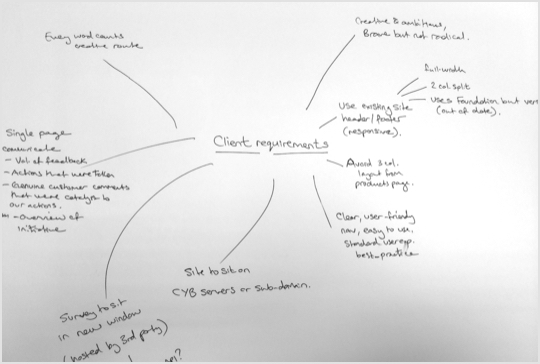 Every word counts
creative route
Creative & ambitious,
Brave but not radical.
full-width
2 col split
Uses Foundation but very
(out of date).
Use existing site
header/footer
(responsive).
Client requirements
Single page
communicate
- Vol of feedback
- Actions that were taken
- Genuine customer comments
that were catalyst to
our actions.
- Overview of
initiative
Avoid 3 col.
layout from
products page.
Clear, user-friendly
nav, easy to use.
Standard user exp.
best-practice
Site to sit on
CYB servers or sub-domain.
Survey to sit
in new window
(hosted by 3rd party)